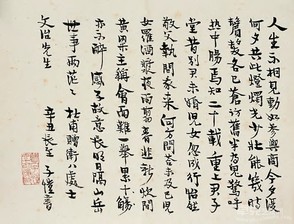 人生不相見動如參與商今夕復
何夕共此燈燭光少壯能幾時
鬢髮各已蒼訪舊半為鬼驚呼
熱中腸焉知二十載重上君子
堂昔別君未婚兒女忽成行怡然
敬父執問我來何方問答未及已兒
女羅酒漿夜雨剪春韭新炊間
黃粱主稱會面難一舉累十觴
亦不醉感子故意長明日隔山岳
世事兩茫茫 杜甫贈衛八處士
先生 辛丑長至 子愷書